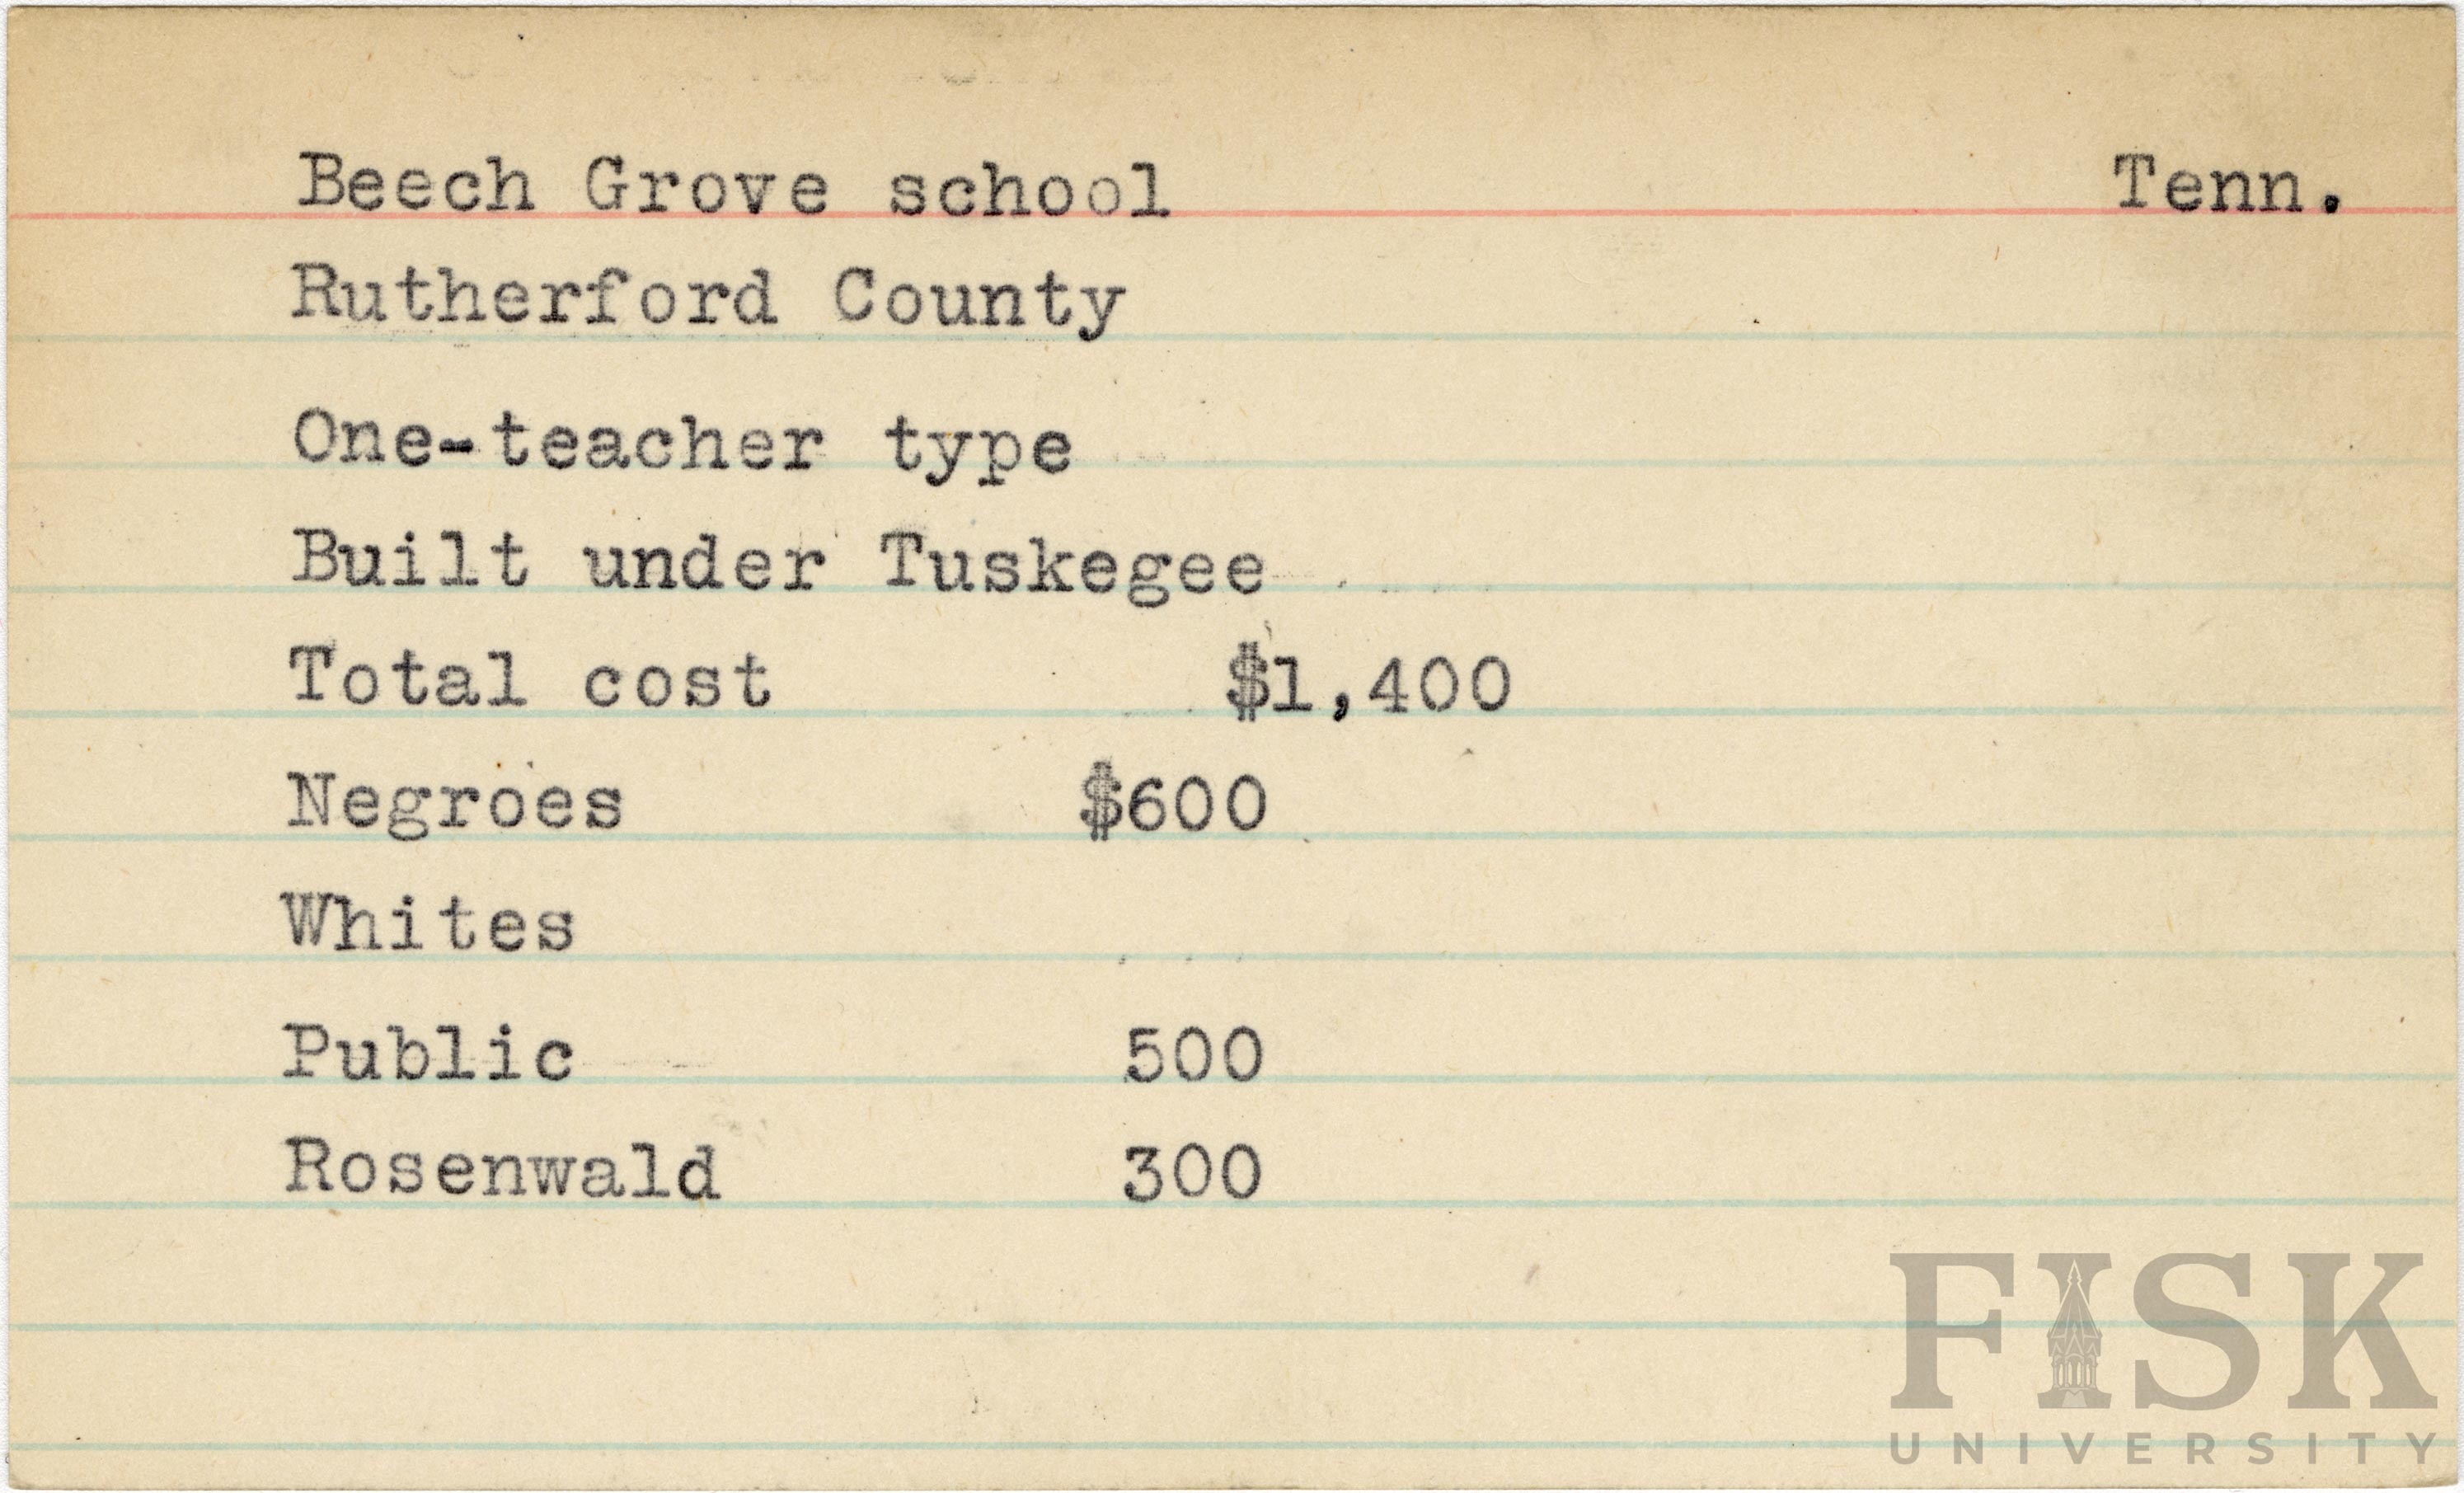 Beech Grove school Tenn.
Rutherford County
One-teacher type
Built under Tuskegee
Total cost $1,400
Negroes $600
Whites
Public 500
Rosenwald 300
FISK
UNIVERSITY